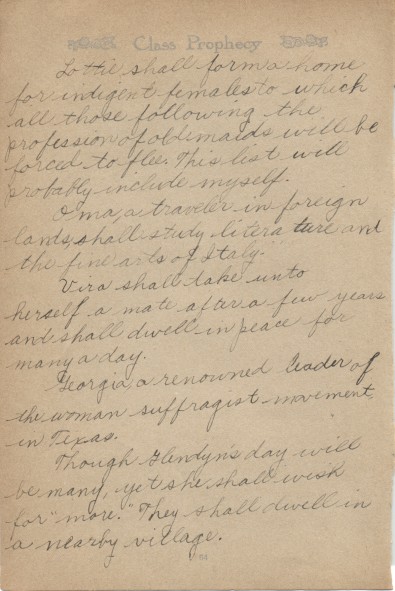 Class Prophecy
Lottie shall form a home
for indigent females to which
all those following the
profession of old maids will be
forced to flee. This list will
probably include myself.
Oma, a traveler in foreign
lands, shall study literature and
the fine arts of Italy."
Vira shall take unto
herself a mate after a few years
and shall dwell in peace for
many a day.
Georgia, a renowned leader of
the woman suffragist movement,
in Texas.
Though Glendyn's day will
be many, yet she shall wish
for "more." They shall dwell in
a nearby village.